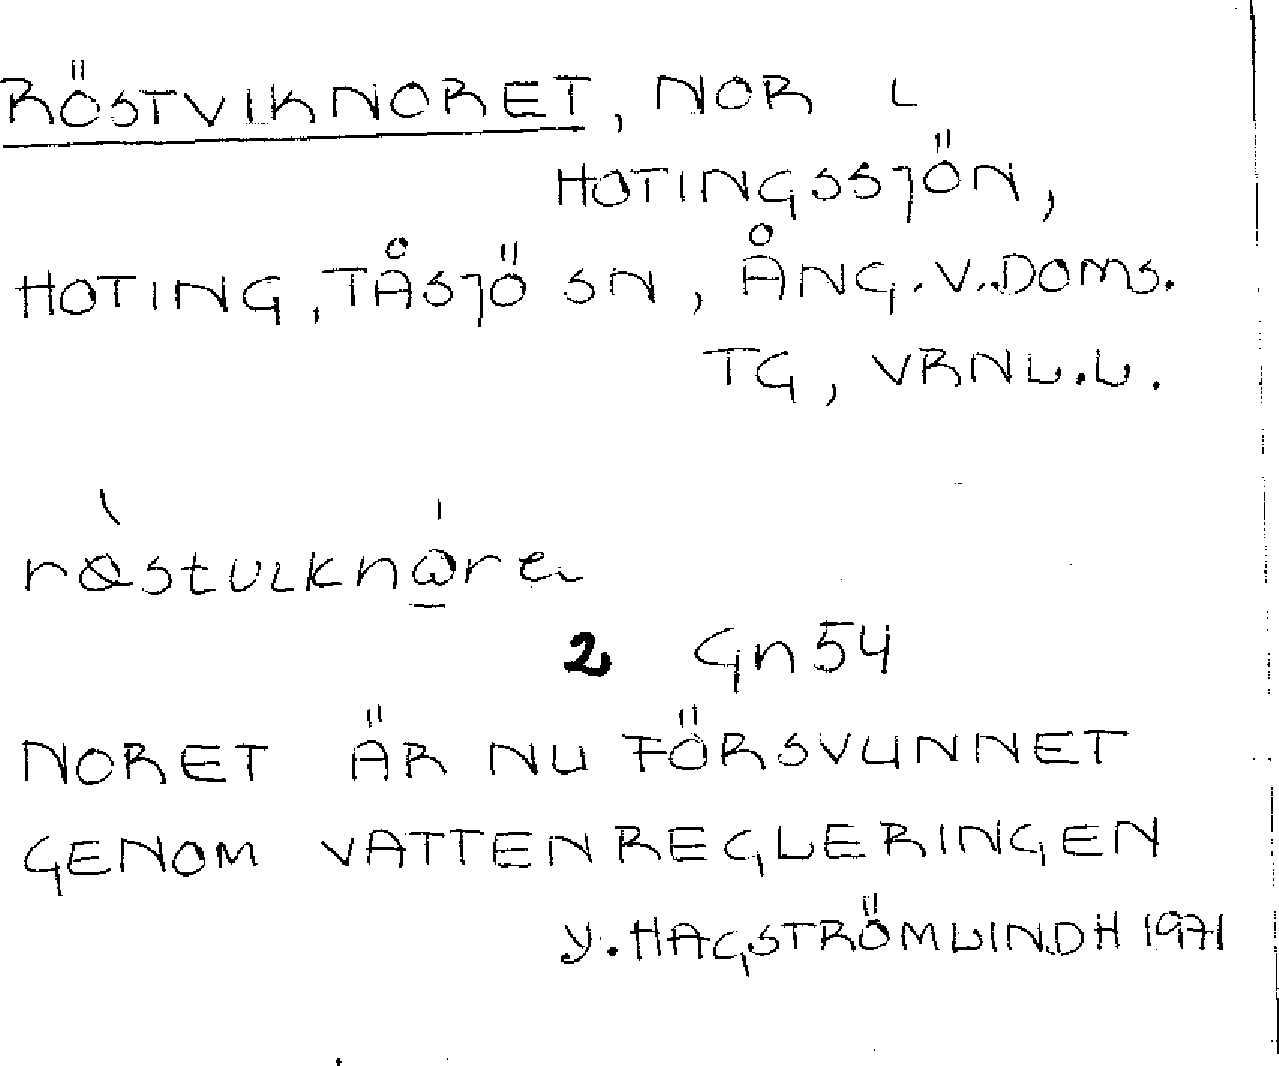 RÖSTVIKNORET, NOR L
HOTINGSSJÖN,
HOTING, TÅSJÖ SN, ÅNG. V. DOMS.
TG, VRNL. L.
2 Gn 54
NORET ÄR NU FÖRSVUNNET
GENOM VATTENREGLERINGEN
Y. HAGSTRÖMLINDH 1971